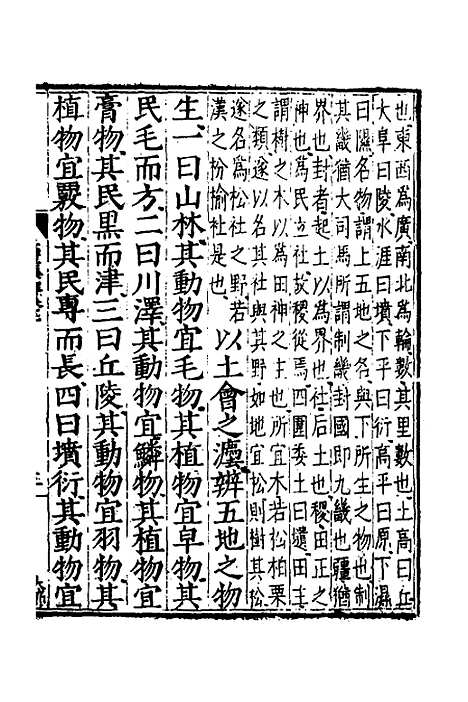 也東西為廣南北為輪數其里數也土高曰丘
大阜曰陵水涯曰墳下平曰衍高平曰原下濕
曰隰名物謂上五地之名與下所生之物也制
其畿猶大司馬所謂制畿封國即九畿也疆猶
界也封者起土以為界也社后土也稷田正之
神也為民立社故稷從焉四圍委土曰壝田主
謂樹之木以為田神之主也所宜木若松柏栗
之類遂以名其社與其野如地宜松則樹其松
遂名為松社之野若
漢之枌榆社是也
以土會之灋辨五地之物
生一曰山林其動物宜毛物其植物宜阜物其
民毛而方二曰川澤其動物宜鱗物其植物宜
膏物其民黑而津三曰丘陵其動物宜羽物其
植物宜覈物其民專而長四曰墳衍其動物宜